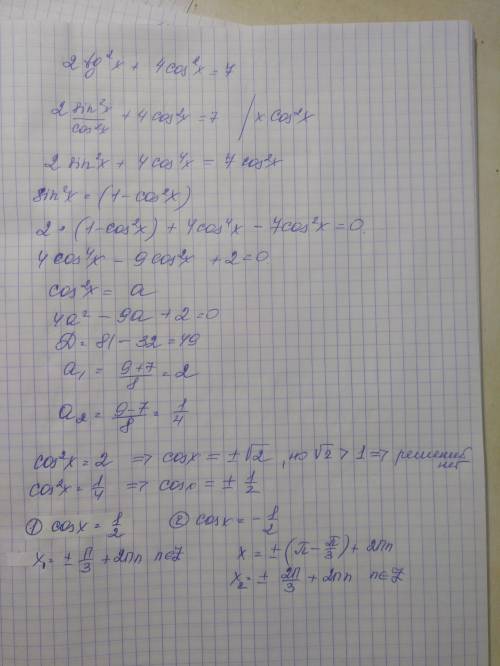 2 tg²x + 4cos²x = 7
2 sin²x/cos²x + 4cos²x = 7 / × cos²x
2 sin²x + 4cos⁴x = 7cos²x
sin²x = (1 - cos²x)
2 · (1 - cos²x) + 4cos⁴x - 7cos²x = 0
4cos⁴x - 9cos²x + 2 = 0
cos²x = a
4a² - 9a + 2 = 0
D = 81 - 32 = 49
a₁ = (9+7)/8 = 2
a₂ = (9-7)/8 = 1/4
cos²x = 2 => cosx = ±√2, но √2 > 1 => решений нет
cos²x = 1/4 => cosx = ± 1/2
① cosx = 1/2 ② cosx = - 1/2
x₁ = ± π/3 + 2πn n∈Z x = ±(π - π/3) + 2πn
x₂ = ± 2π/3 + 2πn n∈Z